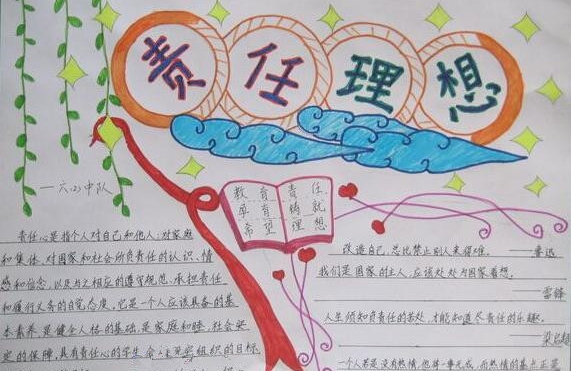 责任理想
一六(2)中队
教育 责任
孕育 铸就
希望 理想
责任心是指个人对自己和他人,对家庭
和集体,对国家和社会所负责任的认识、情
感和信念,以及与之相应的遵守规范、承担责任
和履行义务的自觉态度。它是一个人应该具备的基
本素养,是健全人格的基础,是家庭和睦,社会安
定的保障。具有责任心的学生会 组织的目标
改造自己,总比禁止别人来得难。——鲁迅
我们是国家的主人,应该处处为国家着想。
——雷锋
人生须知负责任的苦处,才能知道尽责任的乐趣。
——梁启超
一个人若是没有热情,他将一事无成,而热情的基点正是